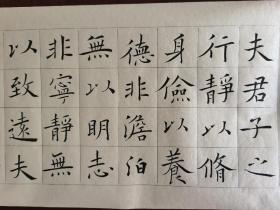 夫君子之
行靜以脩
身儉以養
德非澹泊
無以明志
非寧靜無
以致遠夫